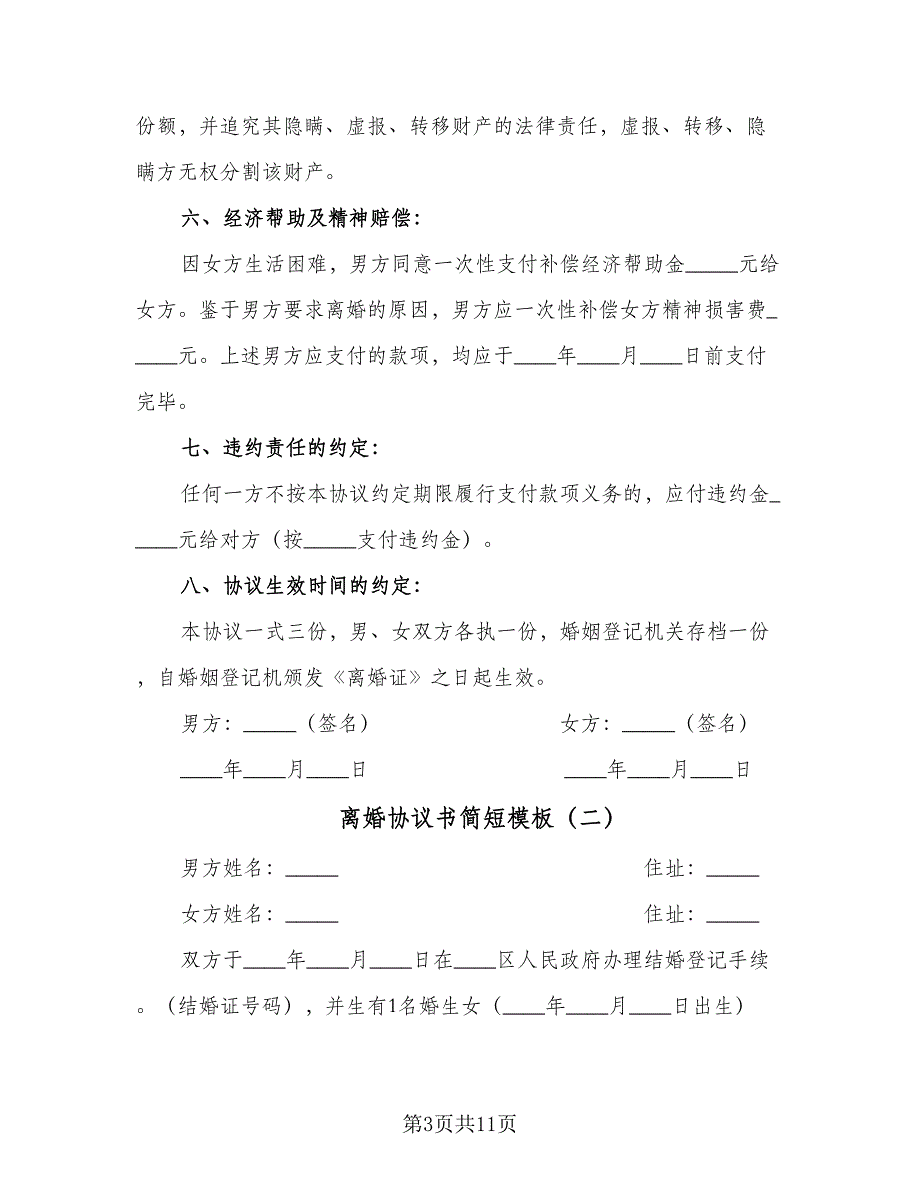 份额，并追究其隐瞒、虚报、转移财产的法律责任，虚报、转移、隐
瞒方无权分割该财产。
六、经济帮助及精神赔偿：
因女方生活困难，男方同意一次性支付补偿经济帮助金_____元给
女方。鉴于男方要求离婚的原因，男方应一次性补偿女方精神损害费_
____元。上述男方应支付的款项，均应于____年____月____日前支付
完毕。
七、违约责任的约定：
任何一方不按本协议约定期限履行支付款项义务的，应付违约金_
____元给对方（按_____支付违约金）。
八、协议生效时间的约定：
本协议一式三份，男、女双方各执一份，婚姻登记机关存档一份
，自婚姻登记机颁发《离婚证》之日起生效。
男方：_____（签名） 女方：_____（签名）
____年____月____日 ____年____月____日
离婚协议书简短模板（二）
男方姓名：_____ 住址：_____
女方姓名：_____ 住址：_____
双方于____年____月____日在____区人民政府办理结婚登记手续
。（结婚证号码），并生有1名婚生女（____年____月____日出生）
第3页共11页